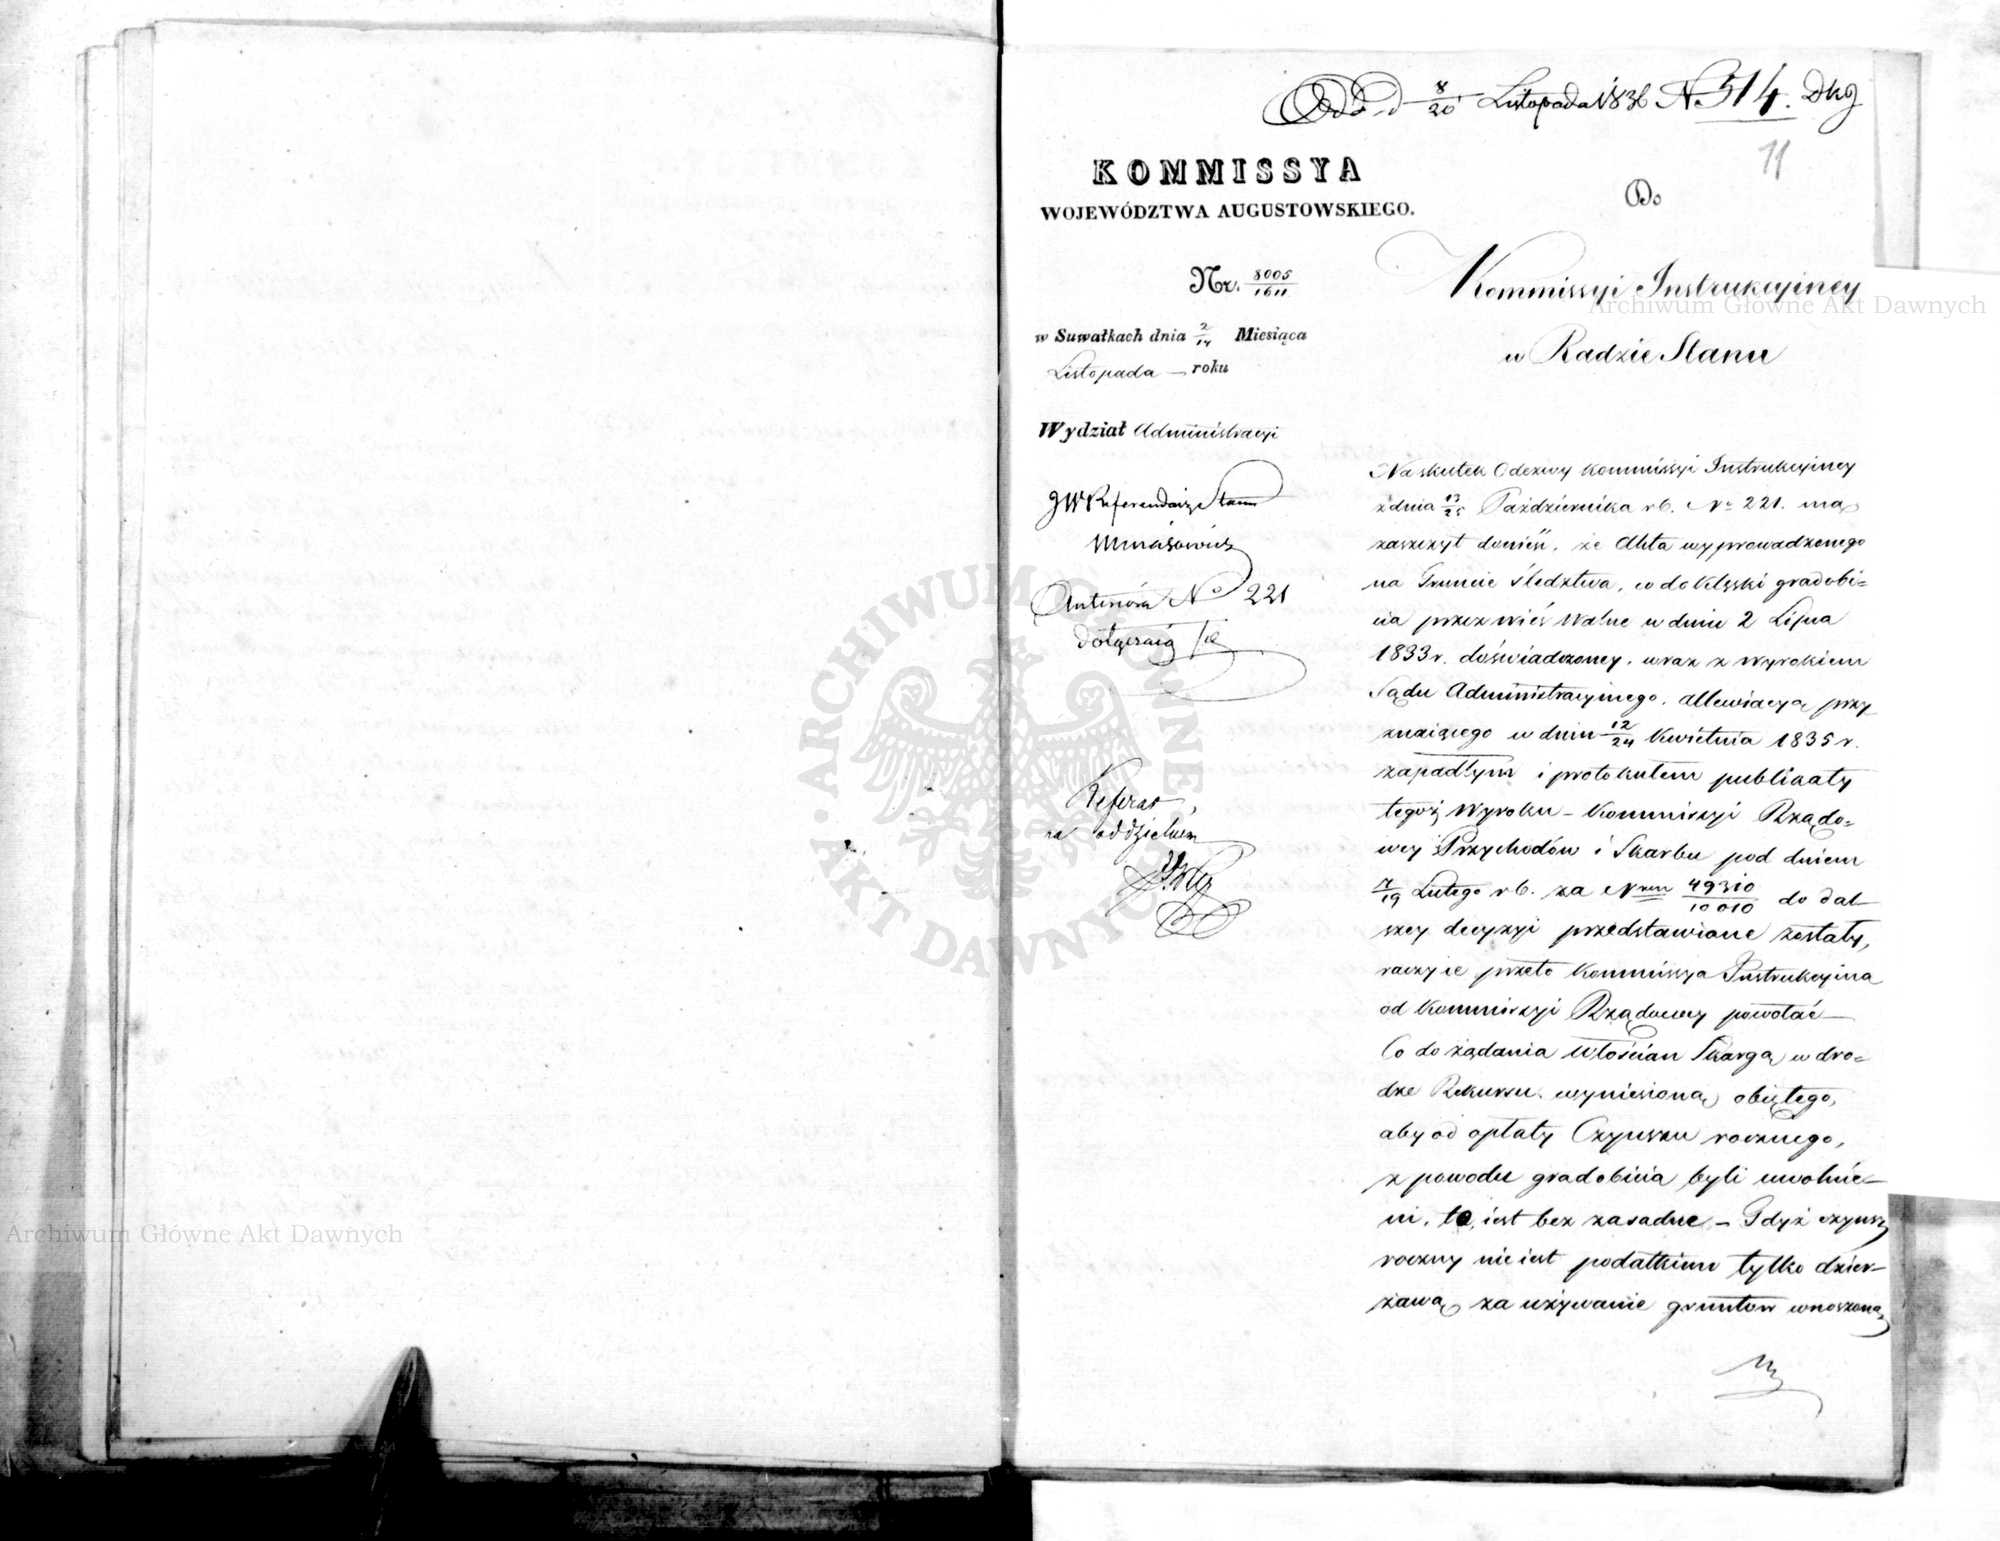 Odd. d 8/20 Listopada 1836 N 514. Dkg
11
KOMMISSYA
WOJEWÓDZTWA AUGUSTOWSKIEGO.
Nr. 8005/1611
w Suwałkach dnia 2/14 Miesiąca
Listopada — roku
Wydział Administracyi
JW Referendarz Stanu
Minasowicz
Anteriora No 221
dołączaią się
Referat
na oddzielnem
Do
Kommissyi Instrukcyiney
w Radzie Stanu
Na skutek Odezwy Kommissyi Instrukcyiney
z dnia 13/25 Października rb. Nr 221. ma
zaszczyt donieść, że Akta wyprowadzonego
na Gruncie śledztwa, co do klęski gradobi=
cia przez wieś Walne w dniu 2 Lipca
1833 r. doświadczoney, wraz z Wyrokiem
Sądu Administracyinego, allewiacyą przy
znaiącego w dniu 12/24 Kwietnia 1835 r.
zapadłym i protokułem publikaty
tegoż Wyroku — Kommissyi Rządo=
wey Przychodów i Skarbu pod dniem
7/19 Lutego rb. za Nrem 49310/10010 do dal
szey decyzyi przedstawione zostały,
raczy ie przeto Kommissya Instrukcyina
od Kommissyi Rządowey powołać —
Co do żądania Włościan Skargą w dro=
dze Rekursu wyniesioną obiętego,
aby od opłaty Czynszu rocznego,
z powodu gradobicia byli uwolnie—
ni, to iest bez zasadne — Gdyż czynsz
roczny nie iest podatkiem tylko dzier—
żawą za używanie gruntow wnoszoną
Archiwum Główne Akt Dawnych
Archiwum Główne Akt Dawnych
ARCHIWUM GŁÓWNE · AKT DAWNYCH ·